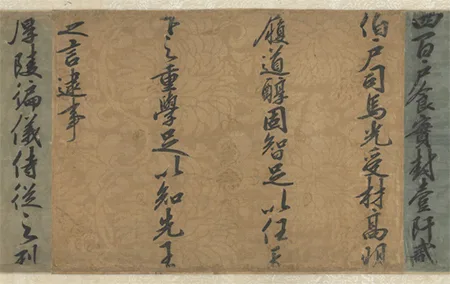 四百戶食實封壹阡貳
伯戶司馬光受材高明
履道醇固智足以任天
下之重學足以知先王
之言逮事
厚陵徧儀侍從之列